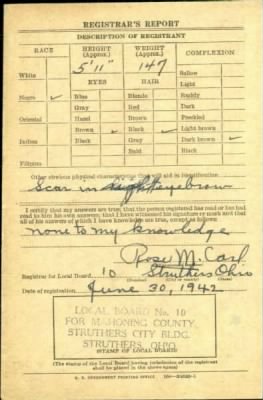 REGISTRAR'S REPORT
DESCRIPTION OF REGISTRANT
RACE HEIGHT (Approx.) WEIGHT (Approx.) COMPLEXION
5' 11" 147
White Sallow
EYES HAIR Light
Negro ✓ Blue Blonde Ruddy
Gray Red Dark
Oriental Hazel Brown Freckled
Brown ✓ Black ✓ Light brown
Indian Black Gray Dark brown ✓
Bald Black
Filipino
Other obvious physical characteristics that will aid in identification
Scar in right eyebrow
I certify that my answers are true; that the person registered has read or has had
read to him his own answers; that I have witnessed his signature or mark and that
all of his answers of which I have knowledge are true, except as follows:
none to my knowledge
Rose M. Carl
Registrar for Local Board 10 Struthers Ohio
Date of registration June 30, 1942
LOCAL BOARD No. 10
FOR MAHONING COUNTY,
STRUTHERS CITY BLDG.
STRUTHERS, OHIO
(STAMP OF LOCAL BOARD)
(The stamp of the Local Board having jurisdiction of the registrant
shall be placed in the above space)
U. S. GOVERNMENT PRINTING OFFICE